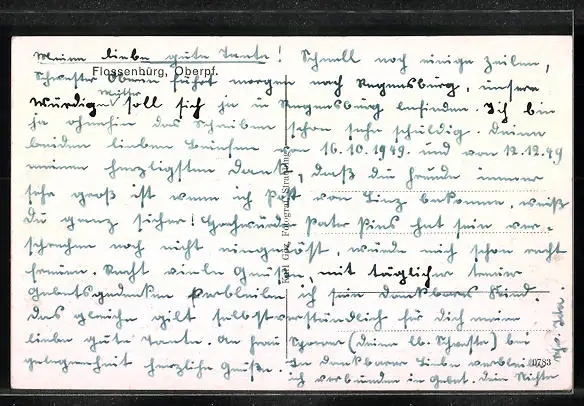 Meine liebe gute Tante! Schnell noch einige Zeilen,
Flossenbürg, Oberpf.
Schwester Oberin fährt morgen nach Regensburg, unsere
Würdige Mutter soll sich ja in Regensburg befinden. Ich bin
ja ohnehin das Schreiben schon sehr schuldig. Deinen
beiden lieben Briefen von 16.10.1949. und von 12.12.49
meinen herzligsten Dank, daß du Freude immer
sehr groß ist wenn ich Post von Linz bekomme, weißt
du ganz sicher! Hochwürden Pater Pius hat sein ver-
sprechen noch nicht eingelöst, würde mich schon recht
freuen. Recht viele Grüßen, mit täglicher treuer
Gebetsgedenken verbleibe ich sein dankbares Kind.
das gleiche gilt selbstverständlich für dich meine
liebe gute Tante. An Frau (deine lb. Schwester) bei
gelegenheit herzliche Grüße. In dankbarer Liebe verbleibe
ich verbunden im Gebet. dein Nichte
0783